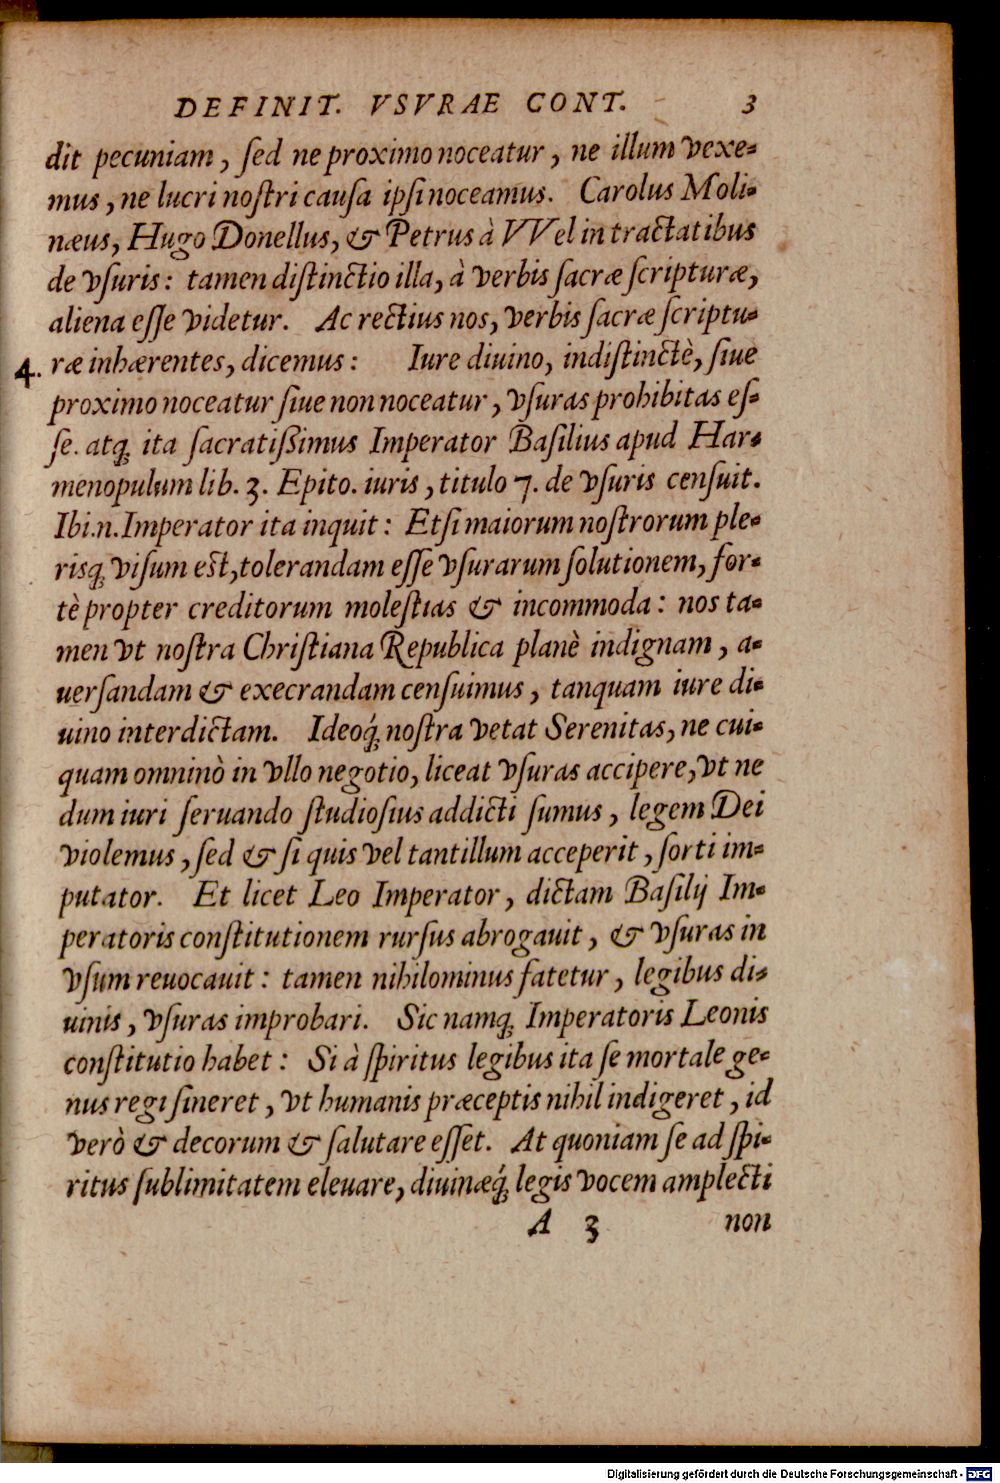 DEFINIT. VSVRAE CONT. 3
dit pecuniam, ſed ne proximo noceatur, ne illum vexe-
mus, ne lucri noſtri cauſa ipſi noceamus. Carolus Moli-
næus, Hugo Donellus, & Petrus à VVel in tractatibus
de vſuris: tamen diſtinctio illa, à verbis ſacræ ſcripturæ,
aliena eſſe videtur. Ac rectius nos, verbis ſacræ ſcriptu-
4. ræ inhærentes, dicemus: Iure diuino, indiſtinctè, ſiue
proximo noceatur ſiue non noceatur, vſuras prohibitas eſ-
ſe. atq; ita ſacratißimus Imperator Baſilius apud Har-
menopulum lib. 3. Epito. iuris, titulo 7. de vſuris cenſuit.
Ibi.n. Imperator ita inquit: Etſi maiorum noſtrorum ple-
risq; viſum est, tolerandam eſſe vſurarum ſolutionem, for-
tè propter creditorum moleſtias & incommoda: nos ta-
men vt noſtra Chriſtiana Republica planè indignam, a-
uerſandam & execrandam cenſuimus, tanquam iure di-
uino interdictam. Ideoq́; noſtra vetat Serenitas, ne cui-
quam omninò in vllo negotio, liceat vſuras accipere, vt ne
dum iuri ſeruando ſtudioſius addicti ſumus, legem Dei
violemus, ſed & ſi quis vel tantillum acceperit, ſorti im-
putator. Et licet Leo Imperator, dictam Baſilij Im-
peratoris conſtitutionem rurſus abrogauit, & vſuras in
vſum reuocauit: tamen nihilominus fatetur, legibus di-
uinis, vſuras improbari. Sic namq; Imperatoris Leonis
conſtitutio habet: Si à ſpiritus legibus ita ſe mortale ge-
nus regi ſineret, vt humanis præceptis nihil indigeret, id
verò & decorum & ſalutare eſſet. At quoniam ſe ad ſpi-
ritus ſublimitatem eleuare, diuinæq́; legis vocem amplecti
A 3 non
Digitalisierung gefördert durch die Deutsche Forschungsgemeinschaft - DFG